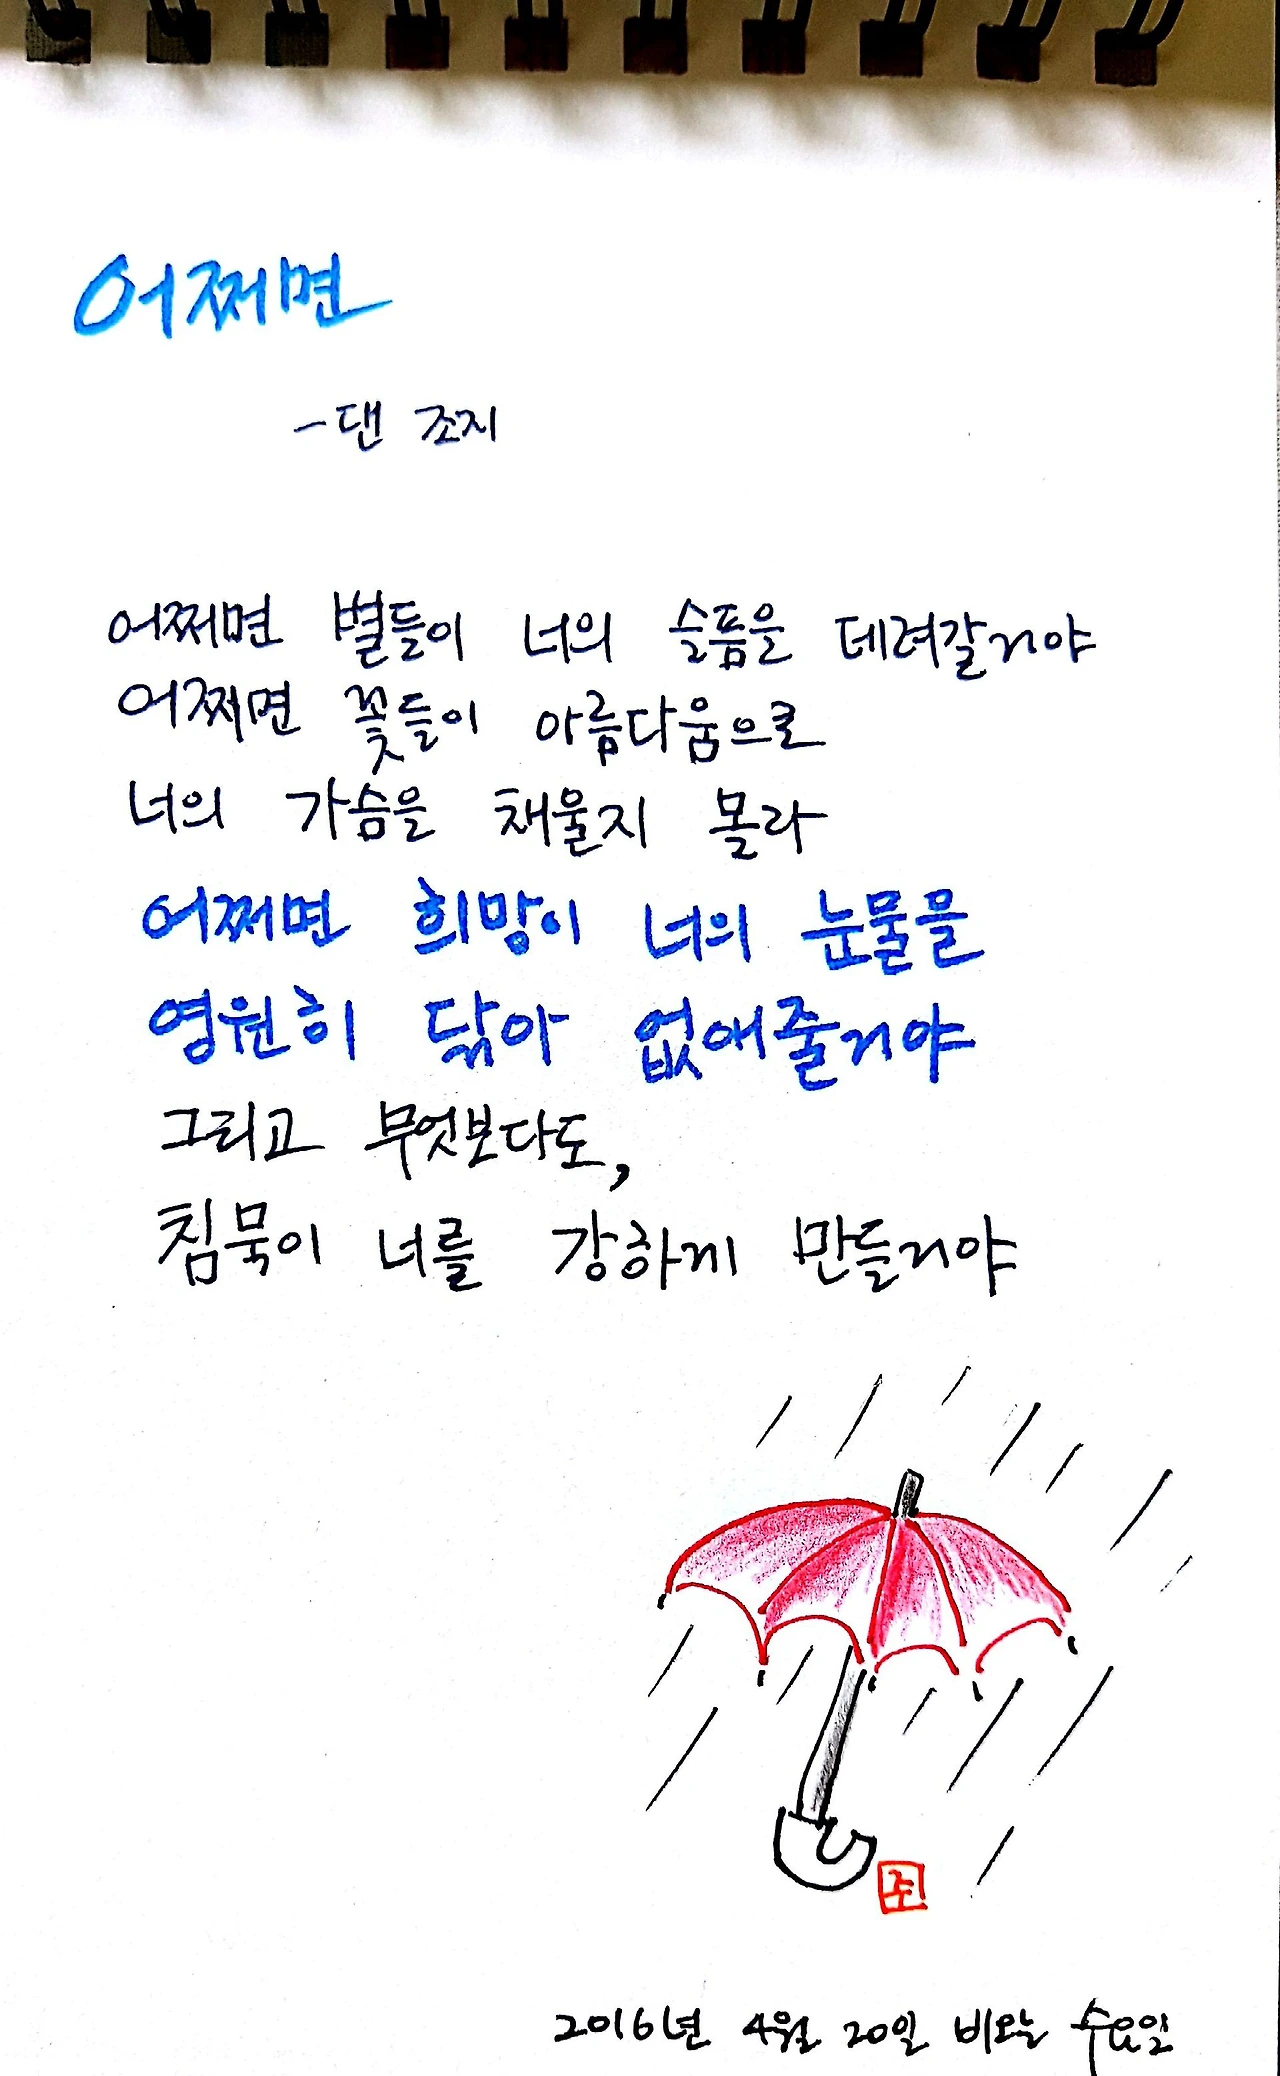 어쩌면
-댄 조지
어쩌면 별들이 너의 슬픔을 데려갈거야
어쩌면 꽃들이 아름다움으로
너의 가슴을 채울지 몰라
어쩌면 희망이 너의 눈물을
영원히 닦아 없애줄거야
그리고 무엇보다도,
침묵이 너를 강하게 만들거야
조
2016년 4월 20일 비오늘 수요일